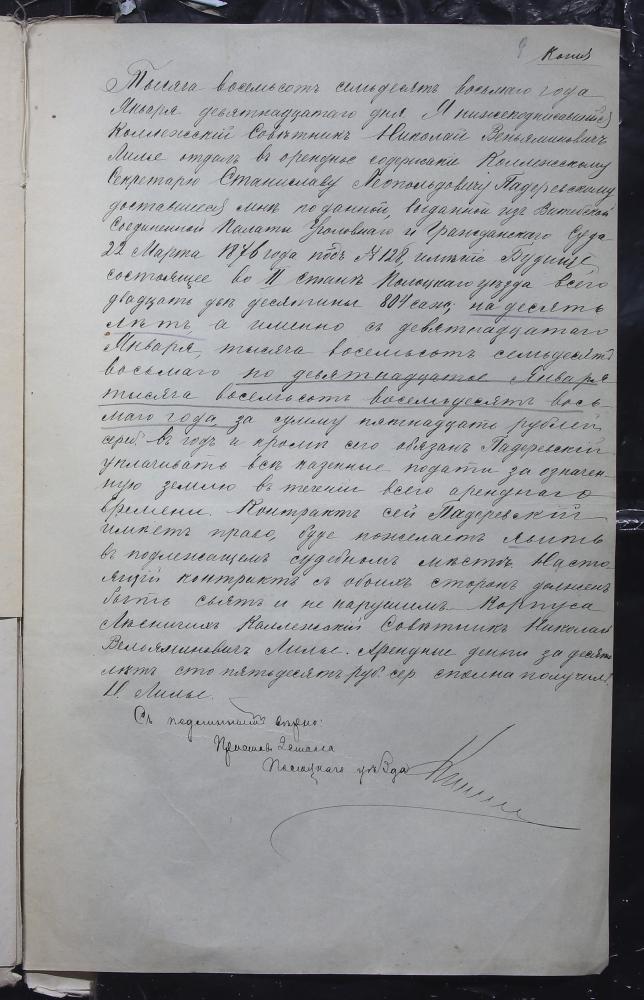 9 Копия
Тысяча восемьсотъ семьдесятъ восьмаго года
Января девятнадцатаго дня Я нижеподписавшійся
Коллежскій Совѣтникъ Николай Веньяминовичъ
Лилье отдалъ въ арендное содержаніе Коллежскому
Секретарю Станиславу Леопольдовичу Падеревскому
доставшееся мнѣ по данной, выданной изъ Витебской
Соединенной Палаты Уголовнаго и Гражданскаго Суда
22 Марта 1876 года подъ № 128, имѣніе Будище
состоящее во II станѣ Полоцкаго уѣзда всего
двадцать двѣ десятины 804 саж., на десять
лѣтъ, а именно съ девятнадцатаго
Января, тысяча восемьсотъ семьдесятъ
восьмаго по девятнадцатое Января
тысяча восемьсотъ восемьдесятъ вось-
маго года, за сумму пятнадцать рублей
сереб. въ годъ и кромѣ сего обязанъ Падеревскій
уплачивать всѣ казенные подати за означен-
ную землю въ теченіи всего аренднаго
времени. Контрактъ сей Падеревскій
имѣетъ право, буде пожелаетъ явить
въ подлежащемъ судебномъ мѣстѣ. Насто-
ящій контрактъ съ обоихъ сторонъ долженъ
быть святъ и не нарушимъ. Корпуса
Лѣсничихъ Коллежскій Совѣтникъ Николай
Веньяминовичъ Лилье. Арендные деньги за десять
лѣтъ сто пятьдесятъ руб. сер. сполна получилъ
Н. Лилье.
Съ подлиннымъ вѣрно:
Приставъ 2 стана
Полоцкаго уѣзда